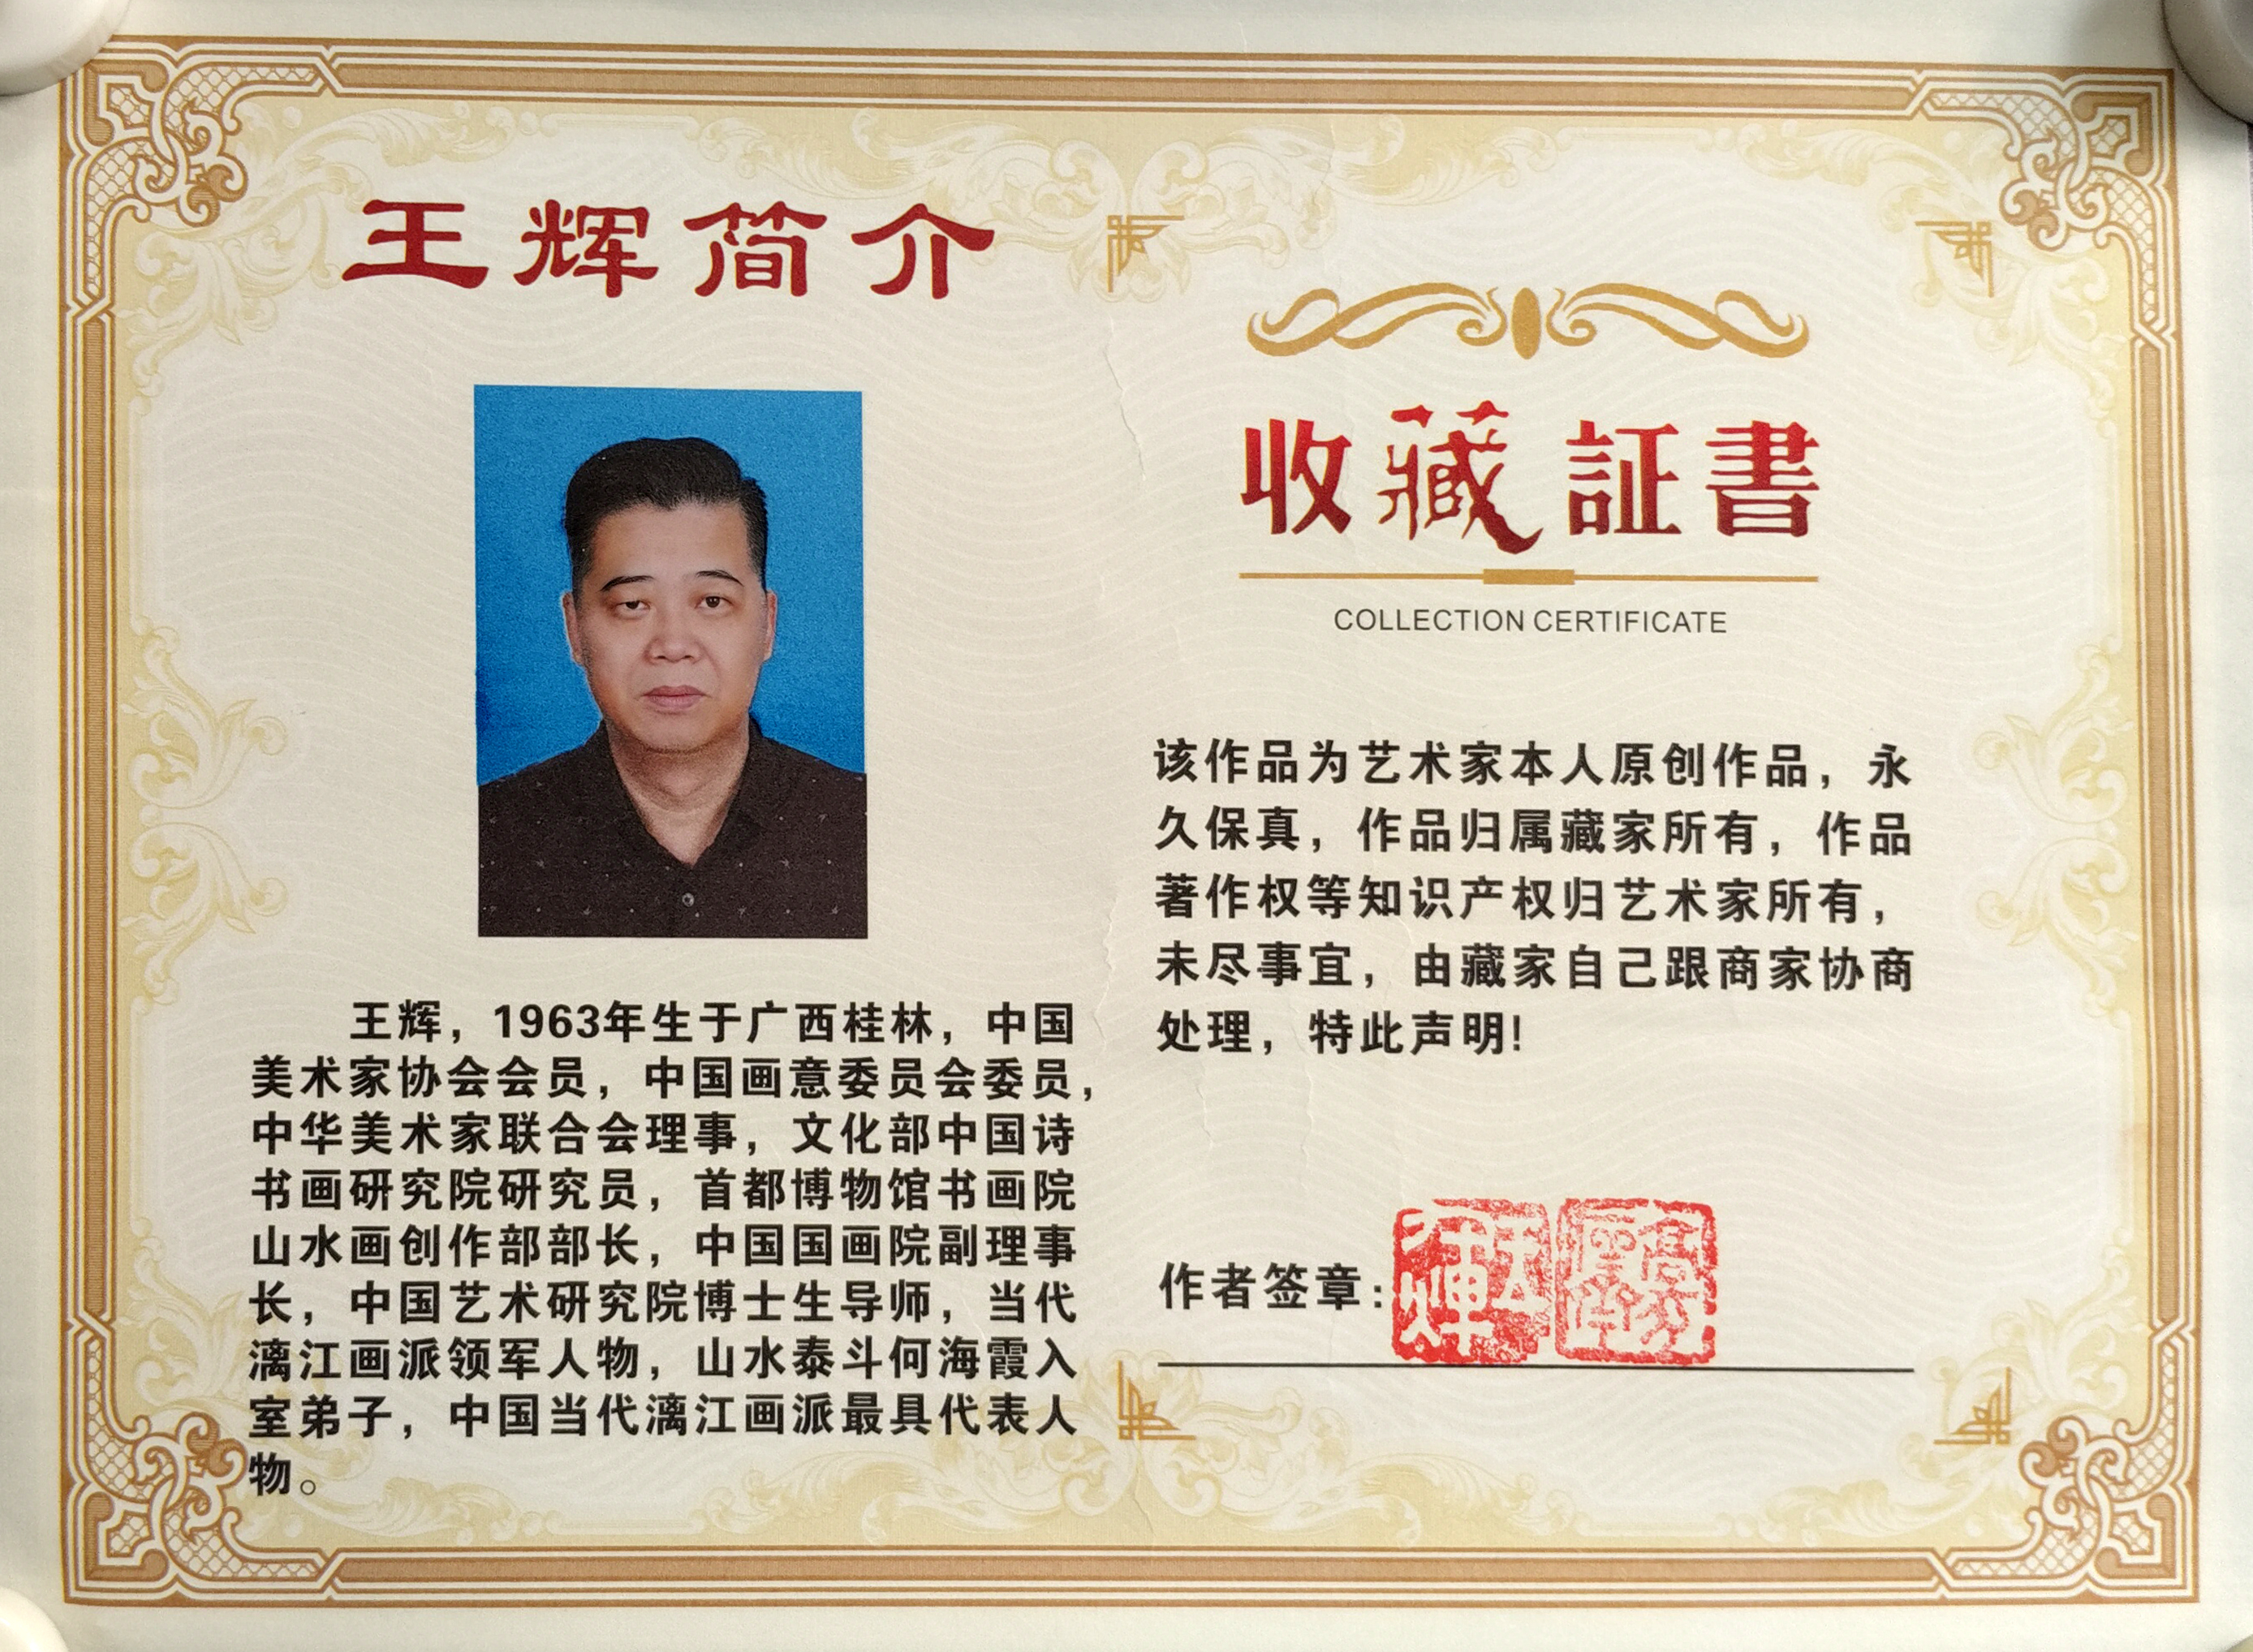 王辉简介
王辉，1963年生于广西桂林，中国
美术家协会会员，中国画意委员会委员，
中华美术家联合会理事，文化部中国诗
书画研究院研究员，首都博物馆书画院
山水画创作部部长，中国国画院副理事
长，中国艺术研究院博士生导师，当代
漓江画派领军人物，山水泰斗何海霞入
室弟子，中国当代漓江画派最具代表人
物。
收藏証書
COLLECTION CERTIFICATE
该作品为艺术家本人原创作品，永
久保真，作品归属藏家所有，作品
著作权等知识产权归艺术家所有，
未尽事宜，由藏家自己跟商家协商
处理，特此声明!
作者签章: